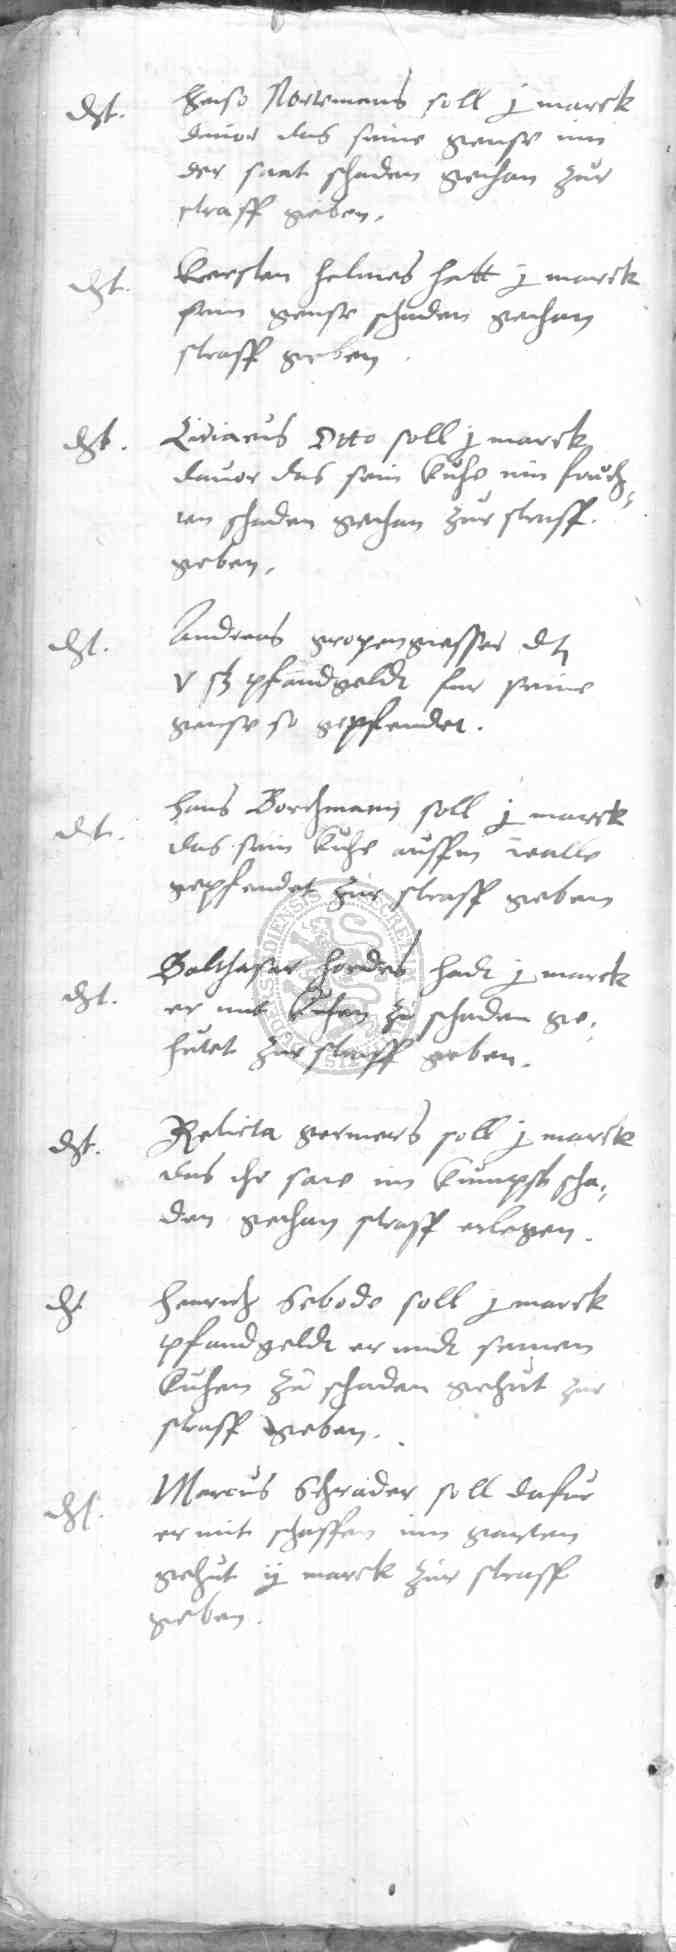 dt. Heiso Nortmans soll j marck
dauor das seine gense inn
der saat schaden gethan zur
straff geben.
dt. Kersten Helmes hatt j marck
sein gense schaden gethan
straff geben.
dt. Ciriacus Otto soll j marck
dauor das sein kuhe inn fruch-
ten schaden gethan zur straff
geben.
dt. Andreas gropengiesser dt
v ß pfandgeldt fur seine
gense so gepfendet.
dt. Hans Borchmann soll j marck
das sein kuhe auffm walle
gepfendet zur straff geben
dt. Balthasar Hordes hadt j marck
er mit kuhen zu schaden ge-
hutet zur straff geben.
dt. Relicta germers soll j marck
das ihr saw im kumpst scha-
den gethan straff erlegen.
dt Henrich Sebode soll j marck
pfandgeldt er midt seinen
kuhen zu schaden gehut zur
straff geben.
dt. Marcus Schrader soll dafur
er mit schaffen inn garten
gehut ij marck zur straff
geben.